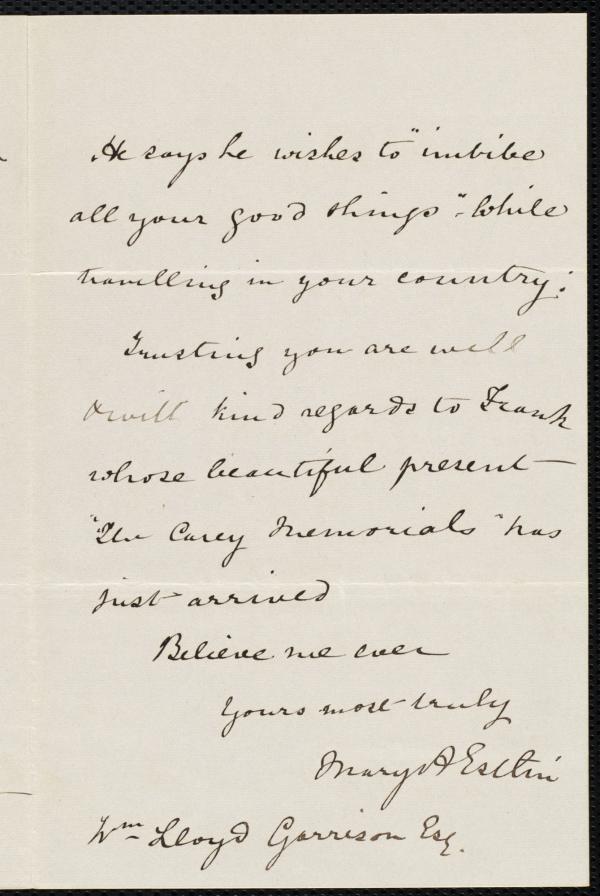 He says he wishes to "imbibe
all your good things" while
travelling in your country.
Trusting you are well
& with kind regards to Frank
whose beautiful present —
"The Carey Memorials" has
just arrived
Believe me ever
Yours most truly
Mary A Estlin
Wm Lloyd Garrison Esq.